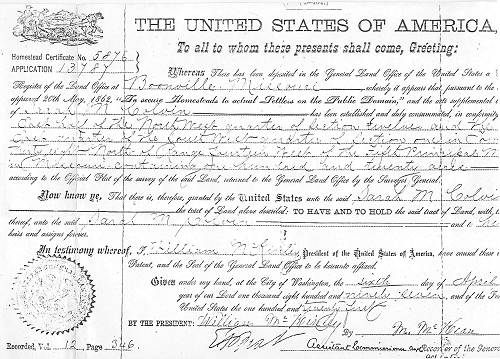 THE UNITED STATES OF AMERICA,
Homestead Certificate No. 5876
APPLICATION 13784
To all to whom these presents shall come, Greeting:
Whereas There has been deposited in the General Land Office of the United States a
Register of the Land Office at Boonville Missouri, whereby it appears that, pursuant to the
approved 20th May, 1862, "To secure Homesteads to actual Settlers on the Public Domain," and the acts supplemental
Sarah M. Colvin has been established and duly consummated, in conformity
East half of the North West quarter of Section twelve and the
quarter of the South West quarter of Section one in
North of Range West of the Fifth Principal M
in Missouri containing one hundred and twenty acres
according to the Official Plat of the survey of the said Land, returned to the General Land Office by the Surveyor General.
Now know ye, That there is, therefore, granted by the United States unto the said Sarah M Colvi
the tract of Land above described: TO HAVE AND TO HOLD the said tract of Land, with
thereof, unto the said Sarah M Colvin and to he
heirs and assigns forever.
In testimony whereof, I, William McKinley, President of the United States of America, have caused these
Patent, and the Seal of the General Land Office to be hereunto affixed.
Given under my hand, at the City of Washington, the sixth day of April
year of our Lord one thousand eight hundred and ninety seven, and of the
United States the one hundred and twenty first
BY THE PRESIDENT: William McKinley
By M. McKean
Recorded, Vol. 12, Page 346.
Recorder of the General